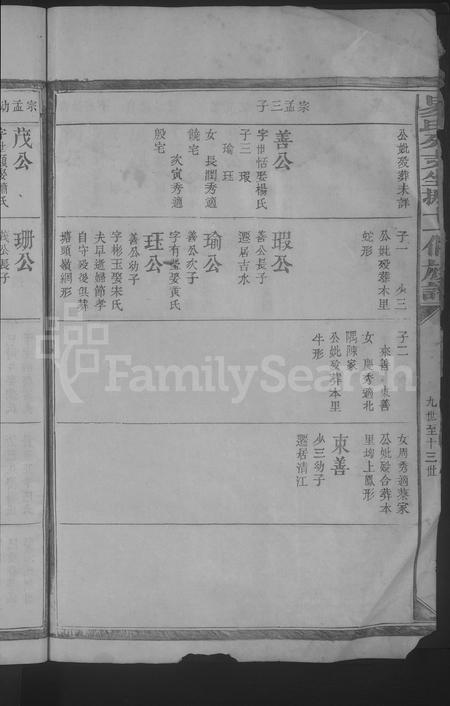 宗孟三子
公妣歿葬未詳
善公
字世恬娶楊氏
子三 瑕
瑜 珏
女長閏秀適
饒宅
次寅秀適
殷宅
子一 少三
公妣歿葬本里
蛇形
瑕公
善公長子
遷居吉水
瑜公
善公次子
字有瑩娶黃氏
珏公
善公幼子
字彬玉娶宋氏
夫早逝婦節孝
自守歿後俱葬
塘頭嶺網形
子二
東善
女 慶秀適北
隅陳家
公妣歿葬本里
牛形
女周秀適蔡家
公妣歿合葬本
里塆上鳳形
束善
少三幼子
遷居清江
九世至十三世
宗孟幼
茂公
珊公
茂公長子
FamilySearch